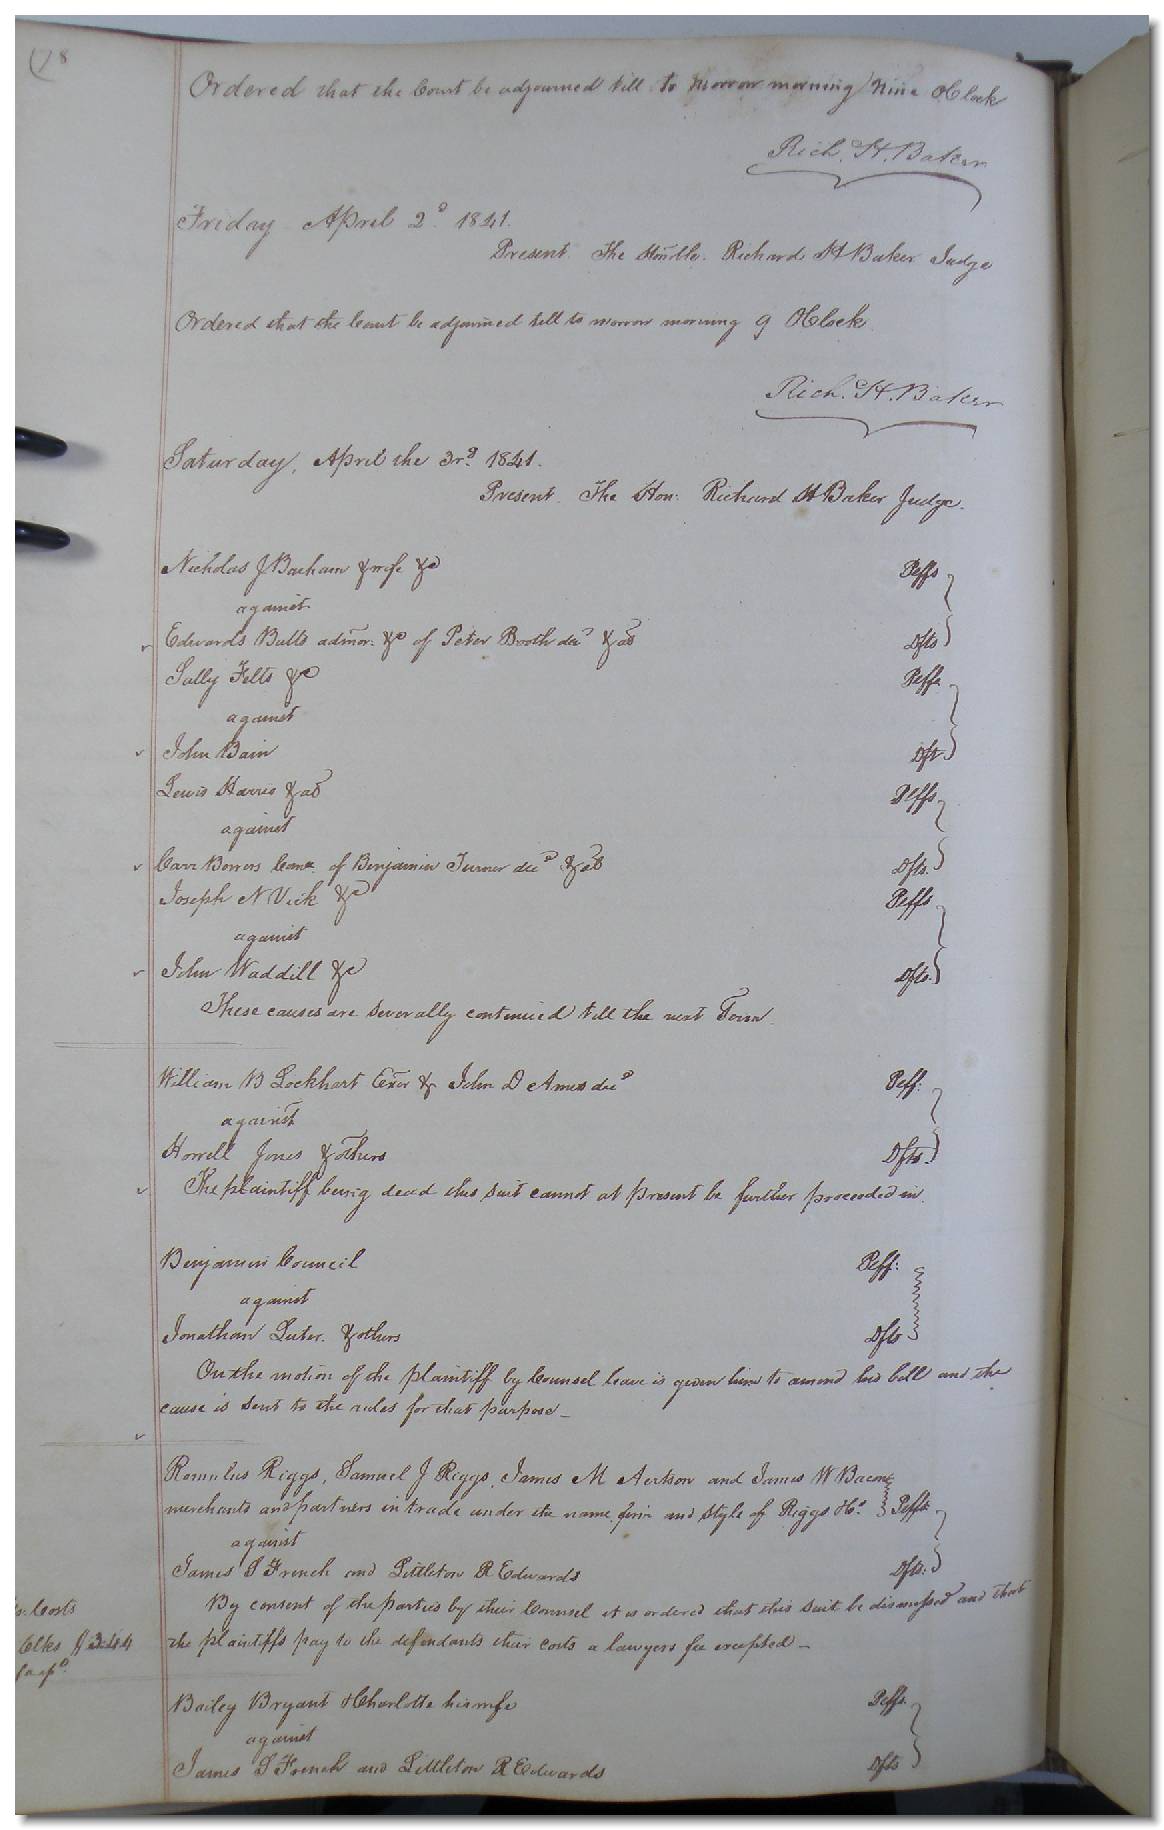 178
Ordered that the Court be adjourned till to morrow morning Nine OClock
Rich. H. Baker
Friday April 2d. 1841.
Present. The Honble. Richard H Baker Judge
Ordered that the Court be adjourned till to morrow morning 9 OClock
Rich. H. Baker
Saturday, April the 3rd. 1841.
Present. The Hon: Richard H Baker Judge.
Nicholas J Barham & wife &c Plffs
against
Edwards Butts admor. &c of Peter Booth decd & als Dfts
Sally Felts &c Plffs
against
John Bain Dft
Lewis Harris & als Plffs
against
Carr Bowers Comr. of Benjamin Turner decd & als Dfts.
Joseph N Vick &c Plffs
against
John Waddill &c Dfts.
These causes are severally continued till the next Term.
William B Lockhart Exor & John D Ames decd Plff:
against
Howell Jones & others Dfts.
The plaintiff being dead this suit cannot at present be further proceeded in.
Benjamin Council Plff:
against
Jonathan Luter. & others Dfts
On the motion of the plaintiff by Counsel leave is given him to amend his bill and the
cause is sent to the rules for that purpose_
Romulus Riggs, Samuel J Riggs, James M Aertson and James W Bacon
merchants and partners in trade under the name firm and style of Riggs & Co. Plffs
against
James S French and Littleton R Edwards Dfts.
By consent of the parties by their Counsel it is ordered that this suit be dismissed and that
Costs
the plaintiffs pay to the defendants their costs a lawyers fee excepted_
Clks $3.44
Bailey Bryant & Charlotte his wife Plffs.
against
James S French and Littleton R Edwards Dfts